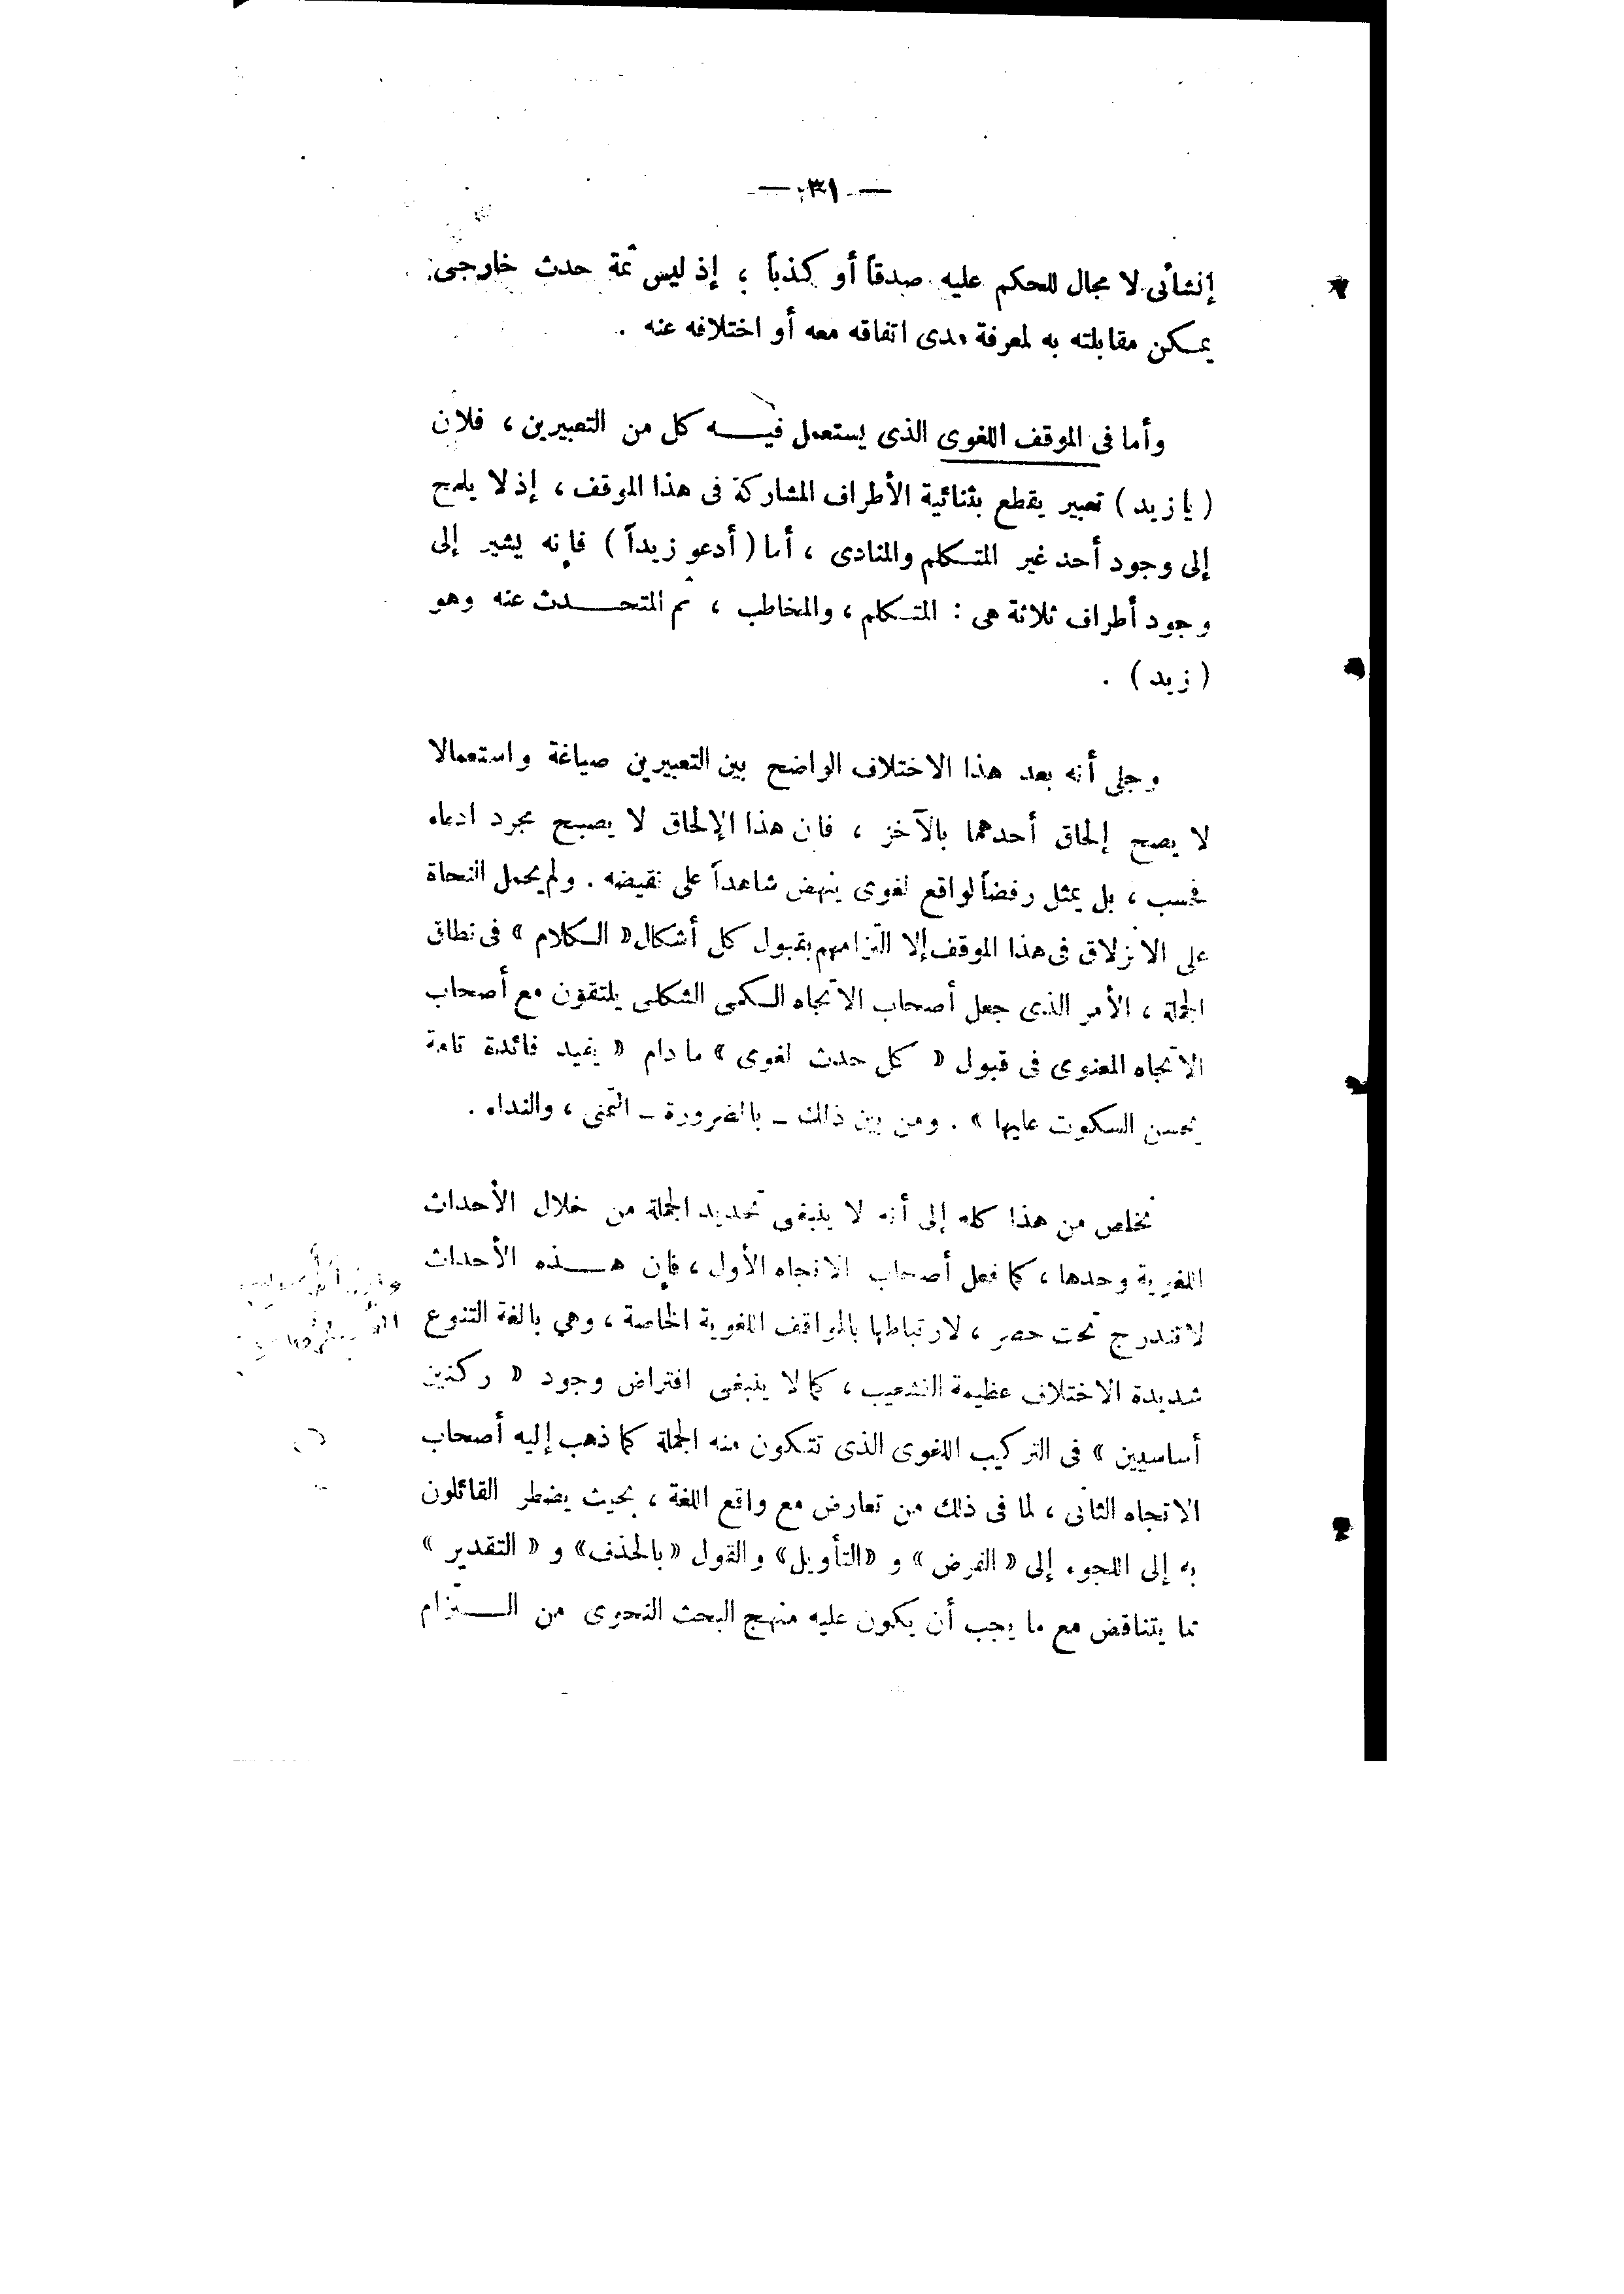 — ٣١ —
إنشائى لا مجال للحكم عليه صدقاً أو كذباً ؛ إذ ليس ثمة حدث خارجى
يمكن مقابلته به لمعرفة مدى اتفاقه معه أو اختلافه عنه .
وأما فى الموقف اللغوى الذى يستعمل فيه كل من التعبيرين ، فلأن
( يا زيد ) تعبير يقطع بثنائية الأطراف المشاركة فى هذا الموقف ، إذ لا يلمح
إلى وجود أحد غير المتكلم والمنادى ، أما ( أدعو زيداً ) فإنه يشير إلى
وجود أطراف ثلاثة هى : المتكلم ، والمخاطب ، ثم المتحدث عنه وهو
( زيد ) .
وجلى أنه بعد هذا الاختلاف الواضح بين التعبيرين صياغة واستعمالا
لا يصح إلحاق أحدهما بالآخر ، فان هذا الإلحاق لا يصبح مجرد ادعاء
فحسب ، بل يمثل رفضاً لواقع لغوى ينهض شاهداً على نقيضه . ولم يحمل النحاة
على الانزلاق فى هذا الموقف إلا التزامهم بقبول كل أشكال « الكلام » فى نطاق
الجملة ، الأمر الذى جعل أصحاب الاتجاه الكمى الشكلى يلتقون مع أصحاب
الاتجاه المعنوى فى قبول « كل حدث لغوى » ما دام « يفيد فائدة تامة
يحسن السكوت عليها » . ومن بين ذلك – بالضرورة – التمنى ، والنداء .
نخلص من هذا كله إلى أنه لا ينبغى تحديد الجملة من خلال الأحداث
اللغوية وحدها ، كما فعل أصحاب الاتجاه الأول ، فإن هذه الأحداث
لا تندرج تحت حصر ، لارتباطها بالمواقف اللغوية الخاصة ، وهي بالغة التنوع
شديدة الاختلاف عظيمة التشعيب ، كما لا ينبغى افتراض وجود « ركنين
أساسيين » فى التركيب اللغوى الذى تتكون منه الجملة كما ذهب إليه أصحاب
الاتجاه الثانى ، لما فى ذلك من تعارض مع واقع اللغة ، بحيث يضطر القائلون
به إلى اللجوء إلى « الفرض » و «التأويل» والقول «بالحذف» و « التقدير »
مما يتناقض مع ما يجب أن يكون عليه منهج البحث النحوى من التزام